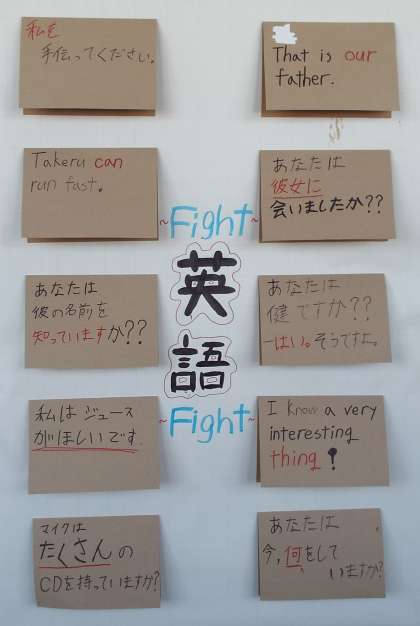 私を
手伝ってください。
Takeru can
run fast.
あなたは
彼の名前を
知っていますか??
私はジュース
がほしいです.
マイクは
たくさんの
CDを持っていますか?
~Fight~
英語
~Fight~
That is our
father.
あなたは
彼女に
会いましたか??
あなたは
健ですか??
ーはい。そうですよ。
I know a very
interesting
thing!
あなたは
今,何をして
いますか?